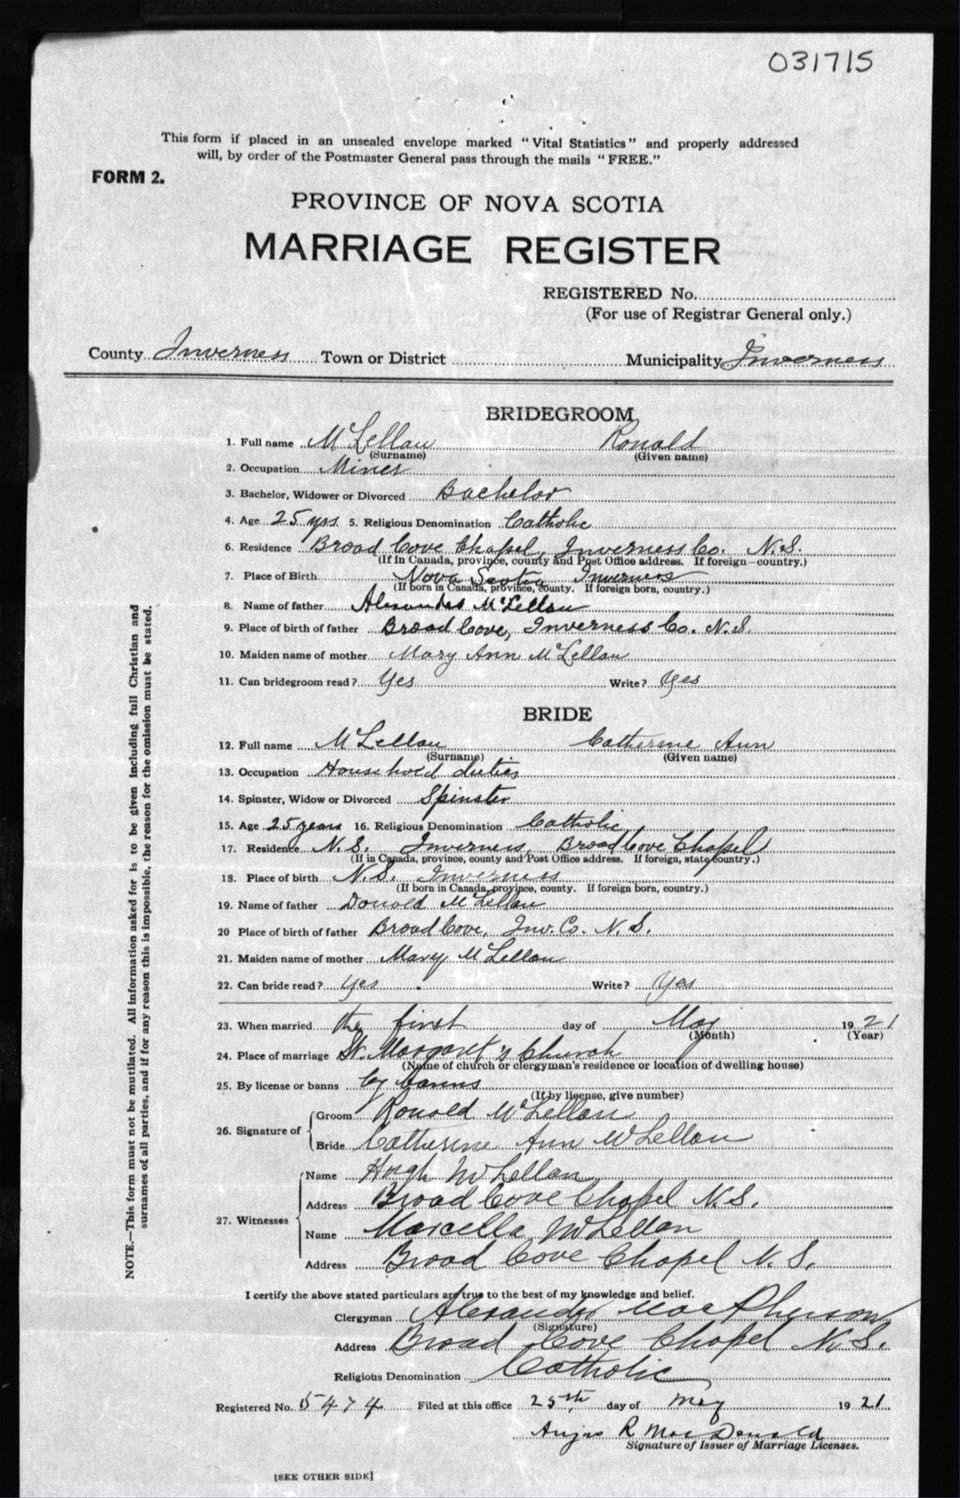 031715
This form if placed in an unsealed envelope marked "Vital Statistics" and properly addressed
will, by order of the Postmaster General pass through the mails "FREE."
FORM 2.
PROVINCE OF NOVA SCOTIA
MARRIAGE REGISTER
REGISTERED No.
(For use of Registrar General only.)
County Inverness Town or District Municipality Inverness
BRIDEGROOM
1. Full name McLellan Ronald
(Surname) (Given name)
2. Occupation Miner
3. Bachelor, Widower or Divorced Bachelor
4. Age 25 yrs 5. Religious Denomination Catholic
6. Residence Broad Cove Chapel, Inverness Co. N.S.
(If in Canada, province, county and Post Office address. If foreign—country.)
7. Place of Birth Nova Scotia Inverness
(If born in Canada, province, county. If foreign born, country.)
8. Name of father Alexander McLellan
9. Place of birth of father Broad Cove, Inverness Co. N.S.
10. Maiden name of mother Mary Ann McLellan
11. Can bridegroom read? Yes Write? Yes
BRIDE
12. Full name McLellan Catherine Ann
(Surname) (Given name)
13. Occupation Household duties
14. Spinster, Widow or Divorced Spinster
15. Age 25 years 16. Religious Denomination Catholic
17. Residence N.S. Inverness, Broad Cove Chapel
(If in Canada, province, county and Post Office address. If foreign, state country.)
18. Place of birth N.S. Inverness
(If born in Canada, province, county. If foreign born, country.)
19. Name of father Donald McLellan
20 Place of birth of father Broad Cove, Inv. Co. N.S.
21. Maiden name of mother Mary McLellan
22. Can bride read? Yes Write? Yes
23. When married the first day of May 1921
(Month) (Year)
24. Place of marriage St. Margaret's Church
(Name of church or clergyman's residence or location of dwelling house)
25. By license or banns by banns
(If by license, give number)
26. Signature of Groom Ronald McLellan
Bride Catherine Ann McLellan
27. Witnesses Name Hugh McLellan
Address Broad Cove Chapel N.S.
Name Marcella McLellan
Address Broad Cove Chapel N.S.
I certify the above stated particulars are true to the best of my knowledge and belief.
Clergyman Alexander MacPherson
(Signature)
Address Broad Cove Chapel N.S.
Religious Denomination Catholic
Registered No. 5474 Filed at this office 25th day of May 1921
Angus R MacDonald
Signature of Issuer of Marriage Licenses.
[SEE OTHER SIDE]
NOTE.—This form must not be mutilated. All information asked for is to be given including full Christian and
surnames of all parties, and if for any reason this is impossible, the reason for the omission must be stated.